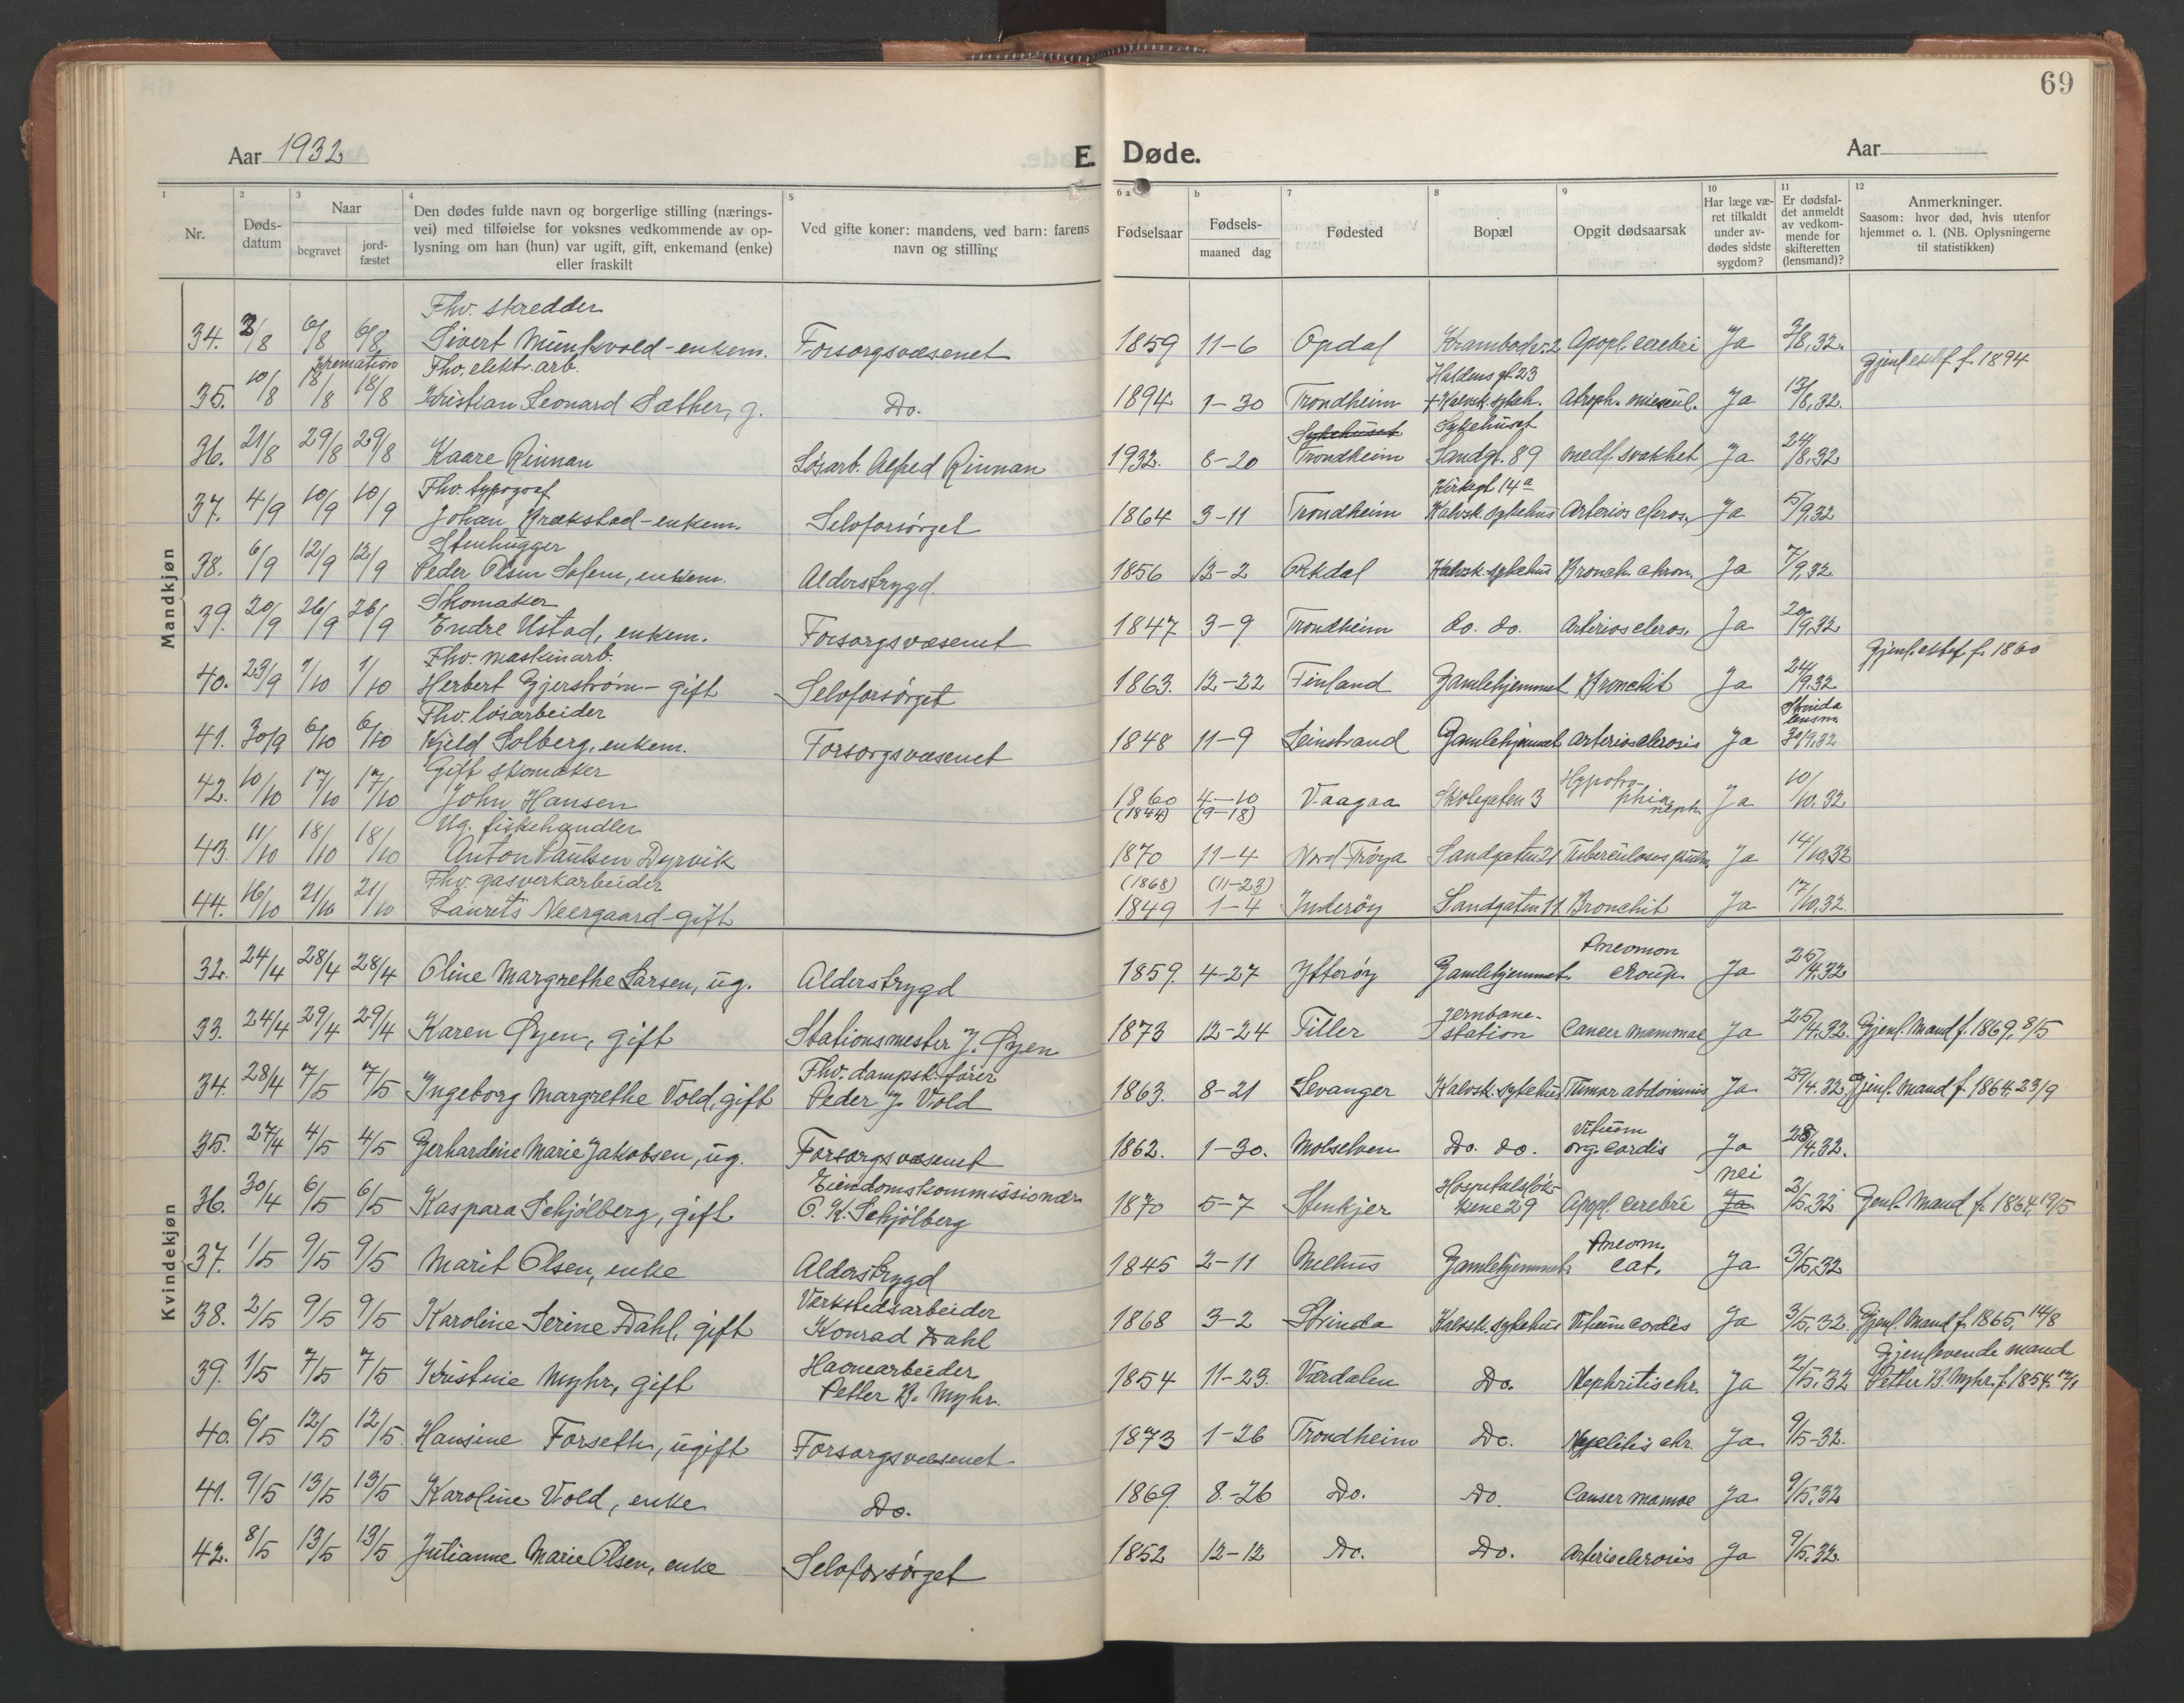 69
Aar 1932
E. Døde.
Aar
1 2 3 4 5 6 a b 7 8 9 10 11 12
Nr.
Døds-
datum
Naar
begravet
jord-
fæstet
Den dødes fulde navn og borgerlige stilling (nærings-
vei) med tilføielse for voksnes vedkommende av op-
lysning om han (hun) var ugift, gift, enkemand (enke)
eller fraskilt
Ved gifte koner: mandens, ved barn: farens
navn og stilling
Fødselsaar
Fødsels-
maaned dag
Fødested
Bopæl
Opgit dødsaarsak
Har læge væ-
ret tilkaldt
under av-
dødes sidste
sygdom?
Er dødsfal-
det anmeldt
av vedkom-
mende for
skifteretten
(lensmand)?
Anmerkninger.
Saasom: hvor død, hvis utenfor
hjemmet o. l. (NB. Oplysningerne
til statistikken)
Mandkjøn
Fhv. skredder
34. 3/8 6/8 6/8 Sivert Munkvold - enkem. Forsorgsvæsenet 1859 11-6 Opdal Krambodv. 2 Apopl. cerebri Ja 3/8.32.
Kremation Fhv. elektr. arb. Haldens gt. 23 Gjenl. ektef. f. 1894
35. 10/8 18/8 18/8 Kristian Leonard Sæther, g. Do. 1894 1-30 Trondheim + Kalvsk. sykeh. Atroph. muscul. Ja 13/8.32.
Sykehuset Sykehuset
36. 21/8 29/8 29/8 Kaare Rinnan Løsarb. Alfred Rinnan 1932. 8-20 Trondheim Sandgt. 89 medf. svakhet Ja 24/8.32
Fhv. typograf Kirkegt 14a
37. 4/9 10/9 10/9 Johan Brækstad - enkem. Selvforsørget 1864 3-11 Trondheim Kalvsk. sykehus Arterioscleros. Ja 5/9.32
Stenhugger
38. 6/9 12/9 12/9 Peder Olsen Solem, enkem. Alderstrygd. 1856 12-2 Orkdal Kalvsk. sykehus Bronch. chron. Ja 7/9.32.
Skomaker
39. 20/9 26/9 26/9 Endre Ustad, enkem. Forsorgsvæsenet 1847 3-9 Trondheim do. do. Arterioscleros. Ja 20/9.32
Fhv. maskinarb. Gjenl. ektef. f. 1860
40. 23/9 1/10 1/10 Herbert Gjerstrøm - gift Selvforsørget 1863. 12-22 Finland Gamlehjemmet Bronchit Ja 24/9.32
Fhv. løsarbeider Strinda lensm.
41. 30/9 6/10 6/10 Kjeld Solberg, enkem. Forsorgsvæsenet 1848 11-9 Leinstrand Gamlehjemmet Arteriosclerosis Ja 30/9.32
Gift skomaker Hypotro-
42. 10/10 17/10 17/10 John Hansen 1860 4-10 Vaagaa Skolegaten 3 phia Ja 10/10.32
(1844) (9-18)
Ug. fiskehandler
43. 11/10 18/10 18/10 Anton Paulsen Dyrvik 1870 11-4 Nord-Frøya Sandgaten 21 Tuberculosis pulm. Ja 14/10.32
Fhv. gasverkarbeider (1868) (11-23)
44. 16/10 21/10 21/10 Laurits Neergaard - gift 1849 1-4 Inderøy Sandgaten 11 Bronchit Ja 17/10.32.
Kvindekjøn
Pneomon
32. 24/4 28/4 28/4 Oline Margrethe Larsen, ug. Alderstrygd 1859. 4-27 Ytterøy Gamlehjemmet. croup. Ja 25/4.32
Jernbane-
33. 24/4 29/4 29/4 Karen Øyen, gift Stationsmester J. Øyen 1873 12-24 Tiller station Cancer mammae Ja 25/4.32. Gjenl. Mand f. 1869, 8/5
Fhv. dampsk. fører
34. 28/4 7/5 7/5 Ingeborg Margrethe Vold, gift Peder J. Vold 1863. 8-21 Levanger Kalvsk. sykehus Tumor abdominis Ja 29/4.32. Gjenl. Mand f. 1864, 23/9
Vitium
35. 27/4 4/5 4/5 Gerhardine Marie Jakobsen, ug. Forsorgsvæsenet 1862. 1-30. Molselven Do. do. org. cordis Ja 28/4.32.
Eiendomskommissionær Hospitalsløk- nei
36. 30/4 6/5 6/5 Kaspara Schjølberg, gift O. K. Schjølberg 1870 5-7 Stenkjer kene 29 Appl. cerebri Ja 2/5.32 Gjenl. Mand f. 1864, 19/5
Pneom.
37. 1/5 9/5 9/5 Marit Olsen, enke Alderstrygd 1845 2-11 Melhus Gamlehjemmet cat. Ja 3/5.32
Verkstedsarbeider
38. 2/5 9/5 9/5 Karoline Serine Dahl, gift Konrad Dahl 1868 3-2 Strinda Kalvsk. sykehus Vitium cordis Ja 3/5.32. Gjenl. Mand f. 1865, 14/8
Havnearbeider Gjenlevende mand
39. 1/5 7/5 7/5 Kristine Myhr, gift Petter B. Myhr. 1854 11-23. Værdalen Do. Nephritis chr. Ja 2/5.32 Petter B. Myhr f. 1854, 12/1
40. 6/5 12/5 12/5 Hansine Forseth, ugift Forsorgsvæsenet 1873 1-26 Trondheim Do. Myelitis chr. Ja 9/5-32.
41. 9/5 13/5 13/5 Karoline Vold, enke Do. 1869. 8.-26 Do. Do Canser mamae Ja 9/5.32
42. 8/5 13/5 13/5 Julianne Marie Olsen, enke Selvforsørget 1852 12-12 Do. Do. Arteriosclerosis Ja 9/5.32.